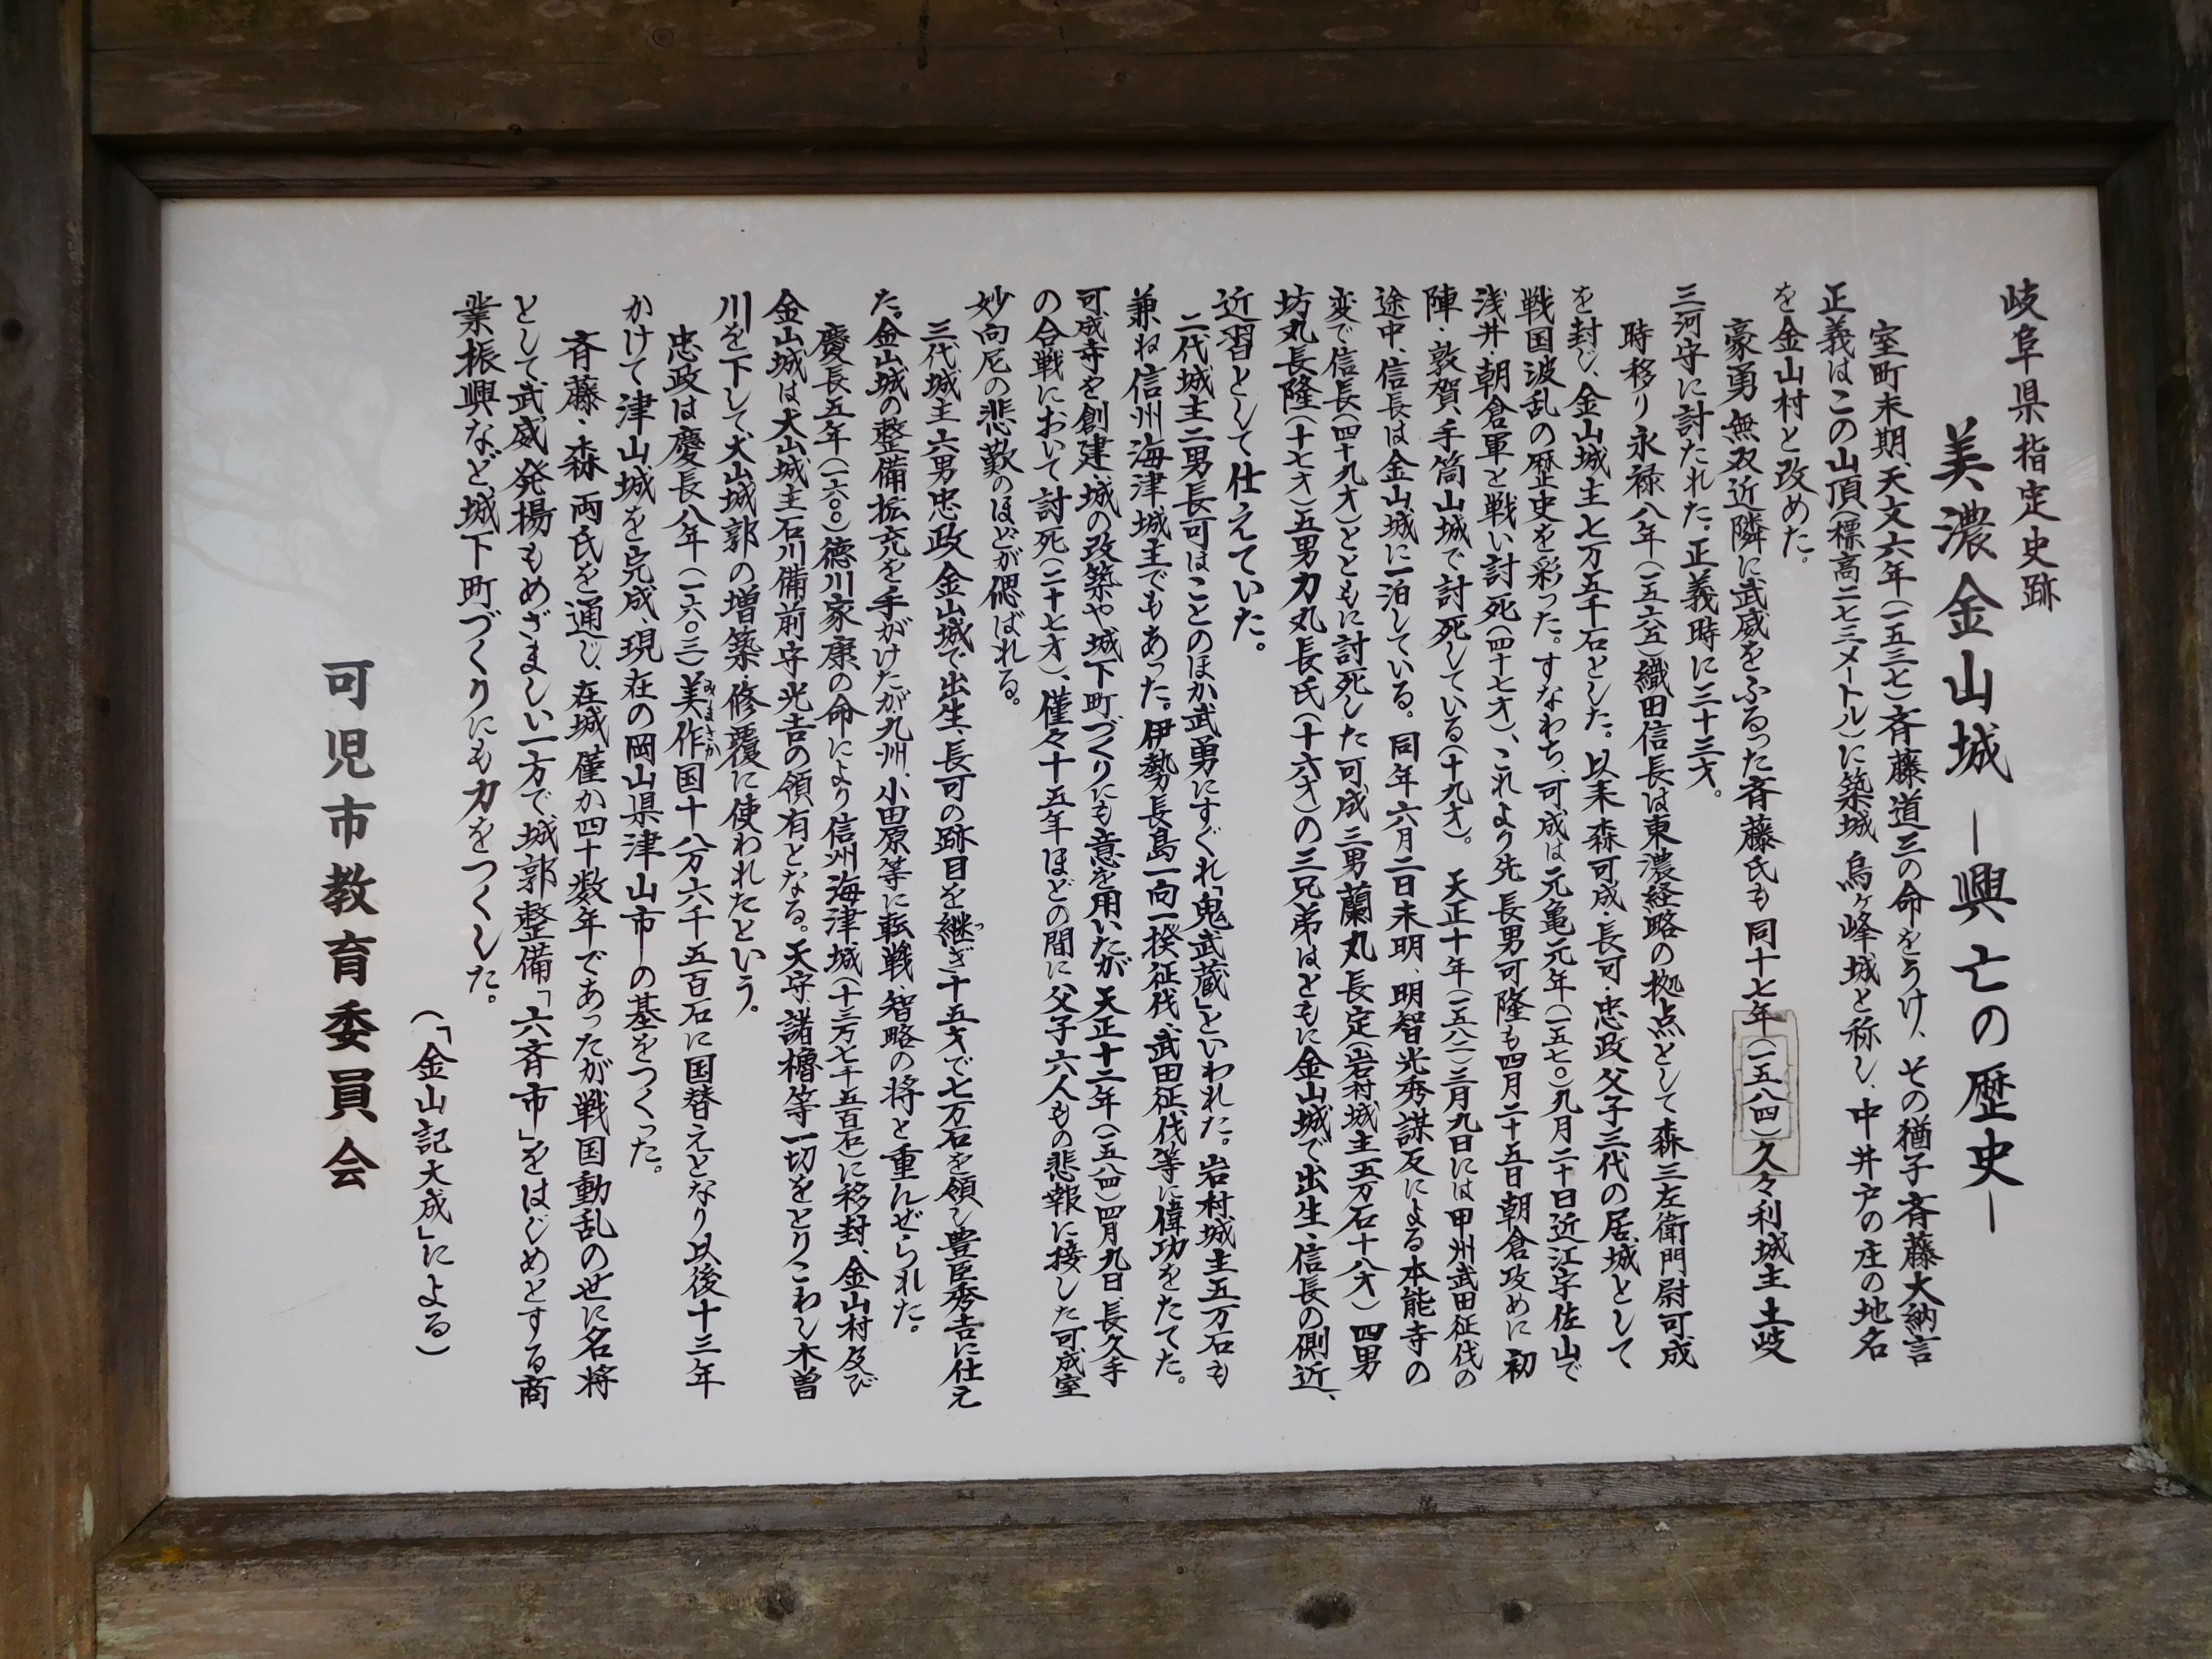 岐阜県指定史跡
美濃金山城 ―興亡の歴史―
室町末期、天文六年(一五三七)斉藤道三の命をうけ、その猶子斉藤大納言
正義はこの山頂(標高二七三メートル)に築城 烏ヶ峰城と称し、中井戸の庄の地名
を金山村と改めた。
豪勇無双近隣に武威をふるった斉藤氏も同十七年(一五八四)久々利城主土岐
三河守に討たれた。正義時に三十三才。
時移り永禄八年(一五六五)織田信長は東濃経略の拠点として森三左衛門尉可成
を封じ、金山城主七万五千石とした。以来森可成・長可・忠政父子三代の居城として
戦国波乱の歴史を彩った。すなわち、可成は元亀元年(一五七〇)九月二十日近江宇佐山で
浅井・朝倉軍と戦い討死(四十七才)、これより先 長男可隆も四月二十五日朝倉攻めに初
陣・敦賀、手筒山城で討死している(十九才)。天正十年(一五八二)三月九日には甲州武田征伐の
途中、信長は金山城に一泊している。同年六月二日未明、明智光秀謀反による本能寺の
変で信長(四十九才)とともに討死した可成三男蘭丸長定(岩村城主五万石十八才)四男
坊丸長隆(十七才)五男力丸長氏(十六才)の三兄弟はともに金山城で出生、信長の側近、
近習として仕えていた。
二代城主二男長可はことのほか武勇にすぐれ「鬼武蔵」といわれた。岩村城主五万石も
兼ね信州海津城主でもあった。伊勢長島一向一揆征伐、武田征伐等に偉功をたてた。
可成寺を創建、城の改築や城下町づくりにも意を用いたが天正十二年(一五八四)四月九日、長久手
の合戦において討死(二十七才)、僅々十五年ほどの間に父子六人もの悲報に接した可成室
妙向尼の悲歎のほどが偲ばれる。
三代城主六男忠政金山城で出生、長可の跡目を継ぎ十五才で七万石を領し豊臣秀吉に仕え
た。金山城の整備拡充を手がけたが九州、小田原等に転戦、智略の将と重んぜられた。
慶長五年(一六〇〇)徳川家康の命により信州海津城(十三万七千五百石)に移封、金山村及び
金山城は犬山城主石川備前守光吉の領有となる。天守、諸櫓等一切をとりこわし木曽
川を下して犬山城郭の増築・修覆に使われたという。
忠政は慶長八年(一六〇三)美作国十八万六千五百石に国替えとなり以後十三年
かけて津山城を完成、現在の岡山県津山市の基をつくった。
斉藤・森両氏を通じ、在城僅か四十数年であったが戦国動乱の世に名将
として武威発揚もめざましい一方で城郭整備「六斉市」をはじめとする商
業振興など、城下町づくりにも力をつくした。
(「金山記大成」による)
可児市教育委員会